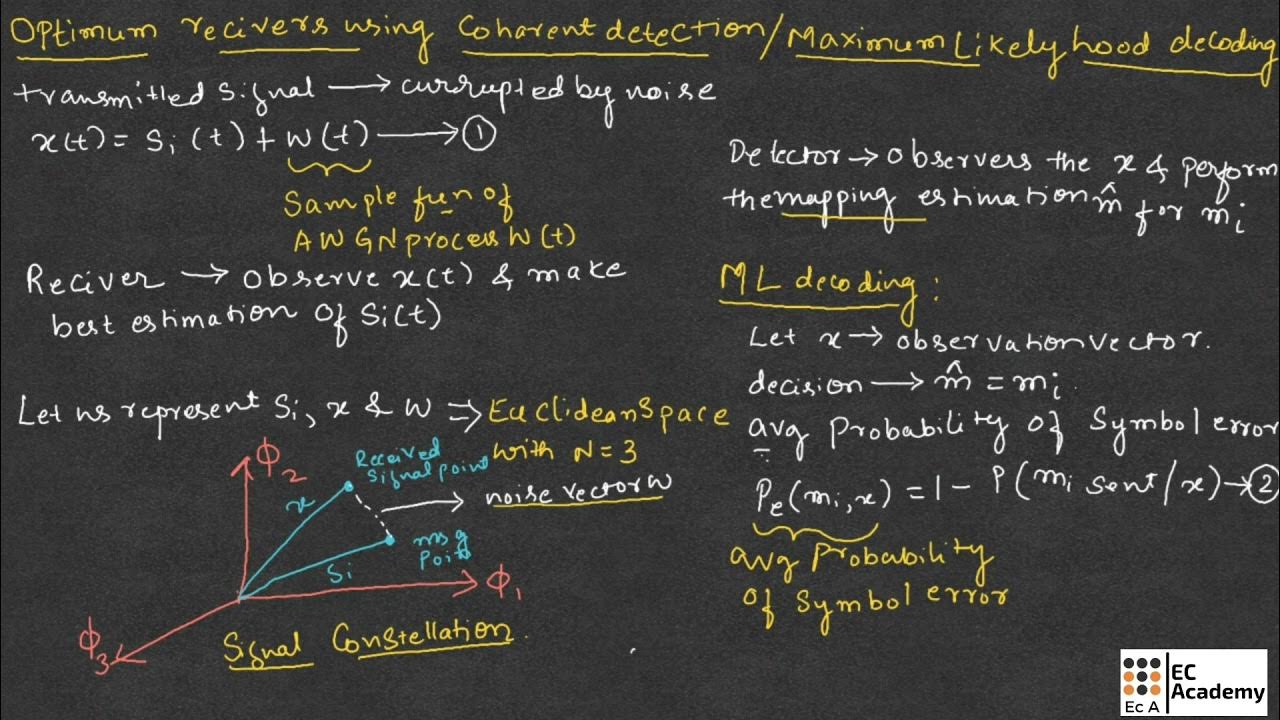 Optimum recivers using Coharent detection/Maximum Likely hood decoding
transmitted signal → currupted by noise
x(t) = Si (t) + W(t) → ①
Sample fun of
AWGN process W(t)
Reciver → observe x(t) & make
best estimation of Si(t)
Let us represent Si, x & W ⇒ Euclidean Space
with N = 3
ϕ2
Received
Signal point
x
noise vector W
msg
Point
Si
ϕ1
ϕ3
Signal Constellation.
Detector → observers the x & perform
the mapping estimation m̂ for mi
ML decoding :
Let x → observation vector.
decision → m̂ = mi.
avg Probability of Symbol error
Pe(mi, x) = 1 - P(mi sent/x) → ②
avg Probability
of Symbol error
EC
Academy
Ec A